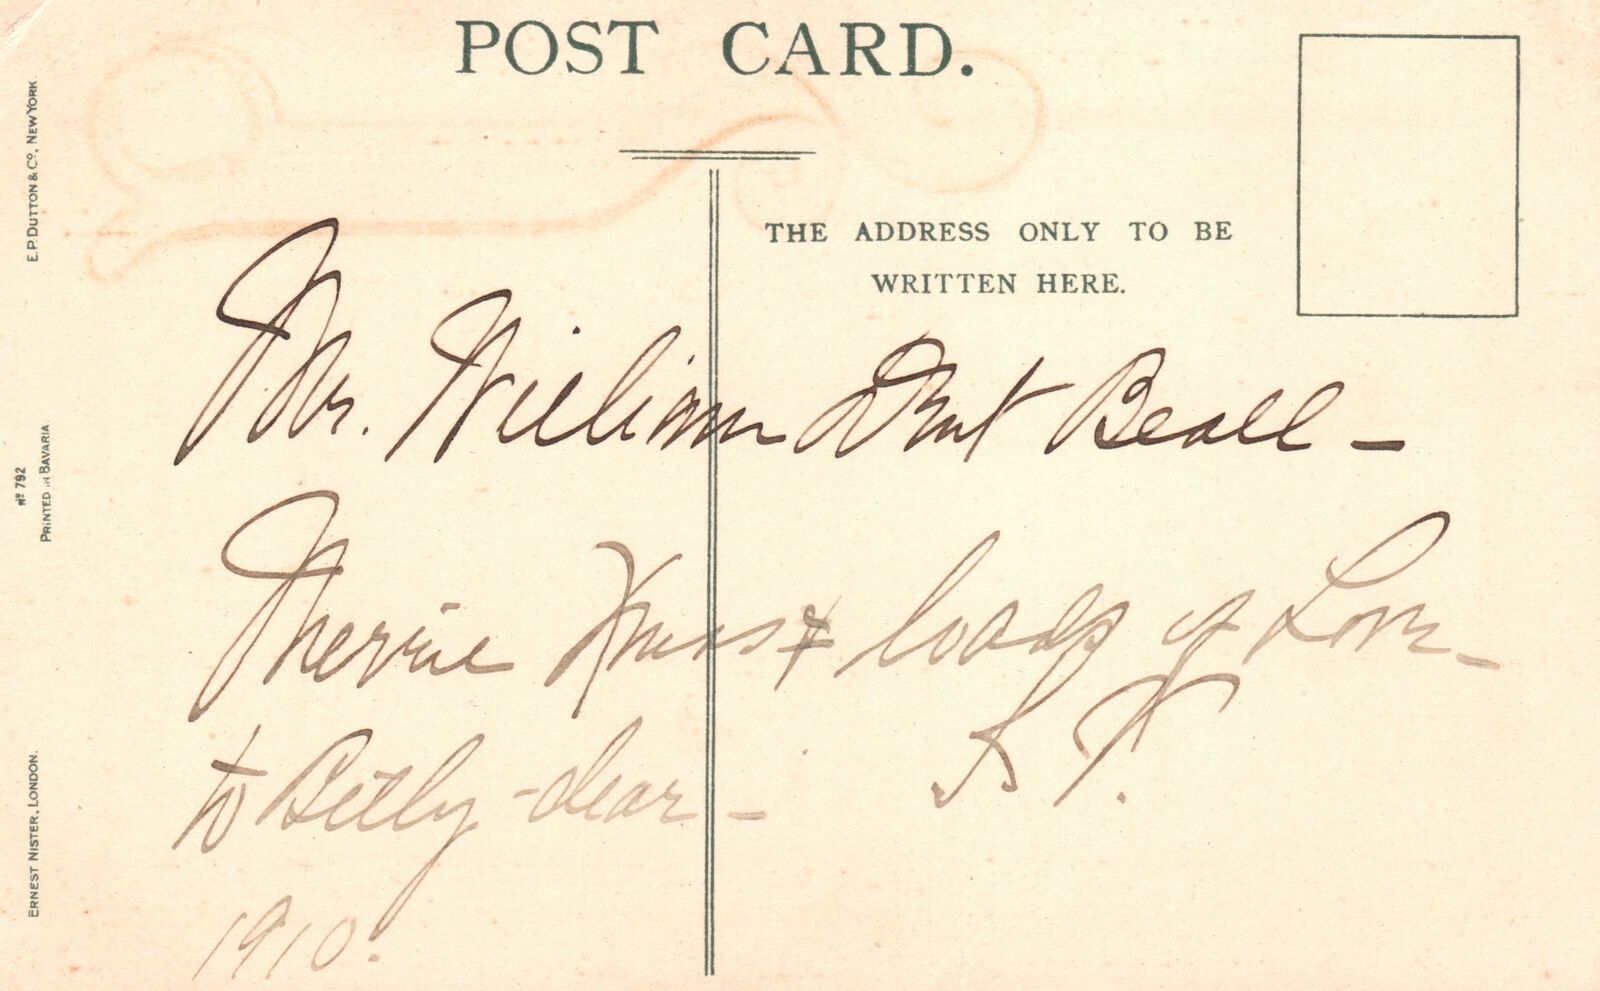 POST CARD.
THE ADDRESS ONLY TO BE
WRITTEN HERE.
Mr. William Beall –
Merrie Xmas & loads of Love –
to Betty – dear –
1910.
E.P. DUTTON & Co. NEW YORK
No 792
PRINTED IN BAVARIA.
ERNEST NISTER, LONDON.